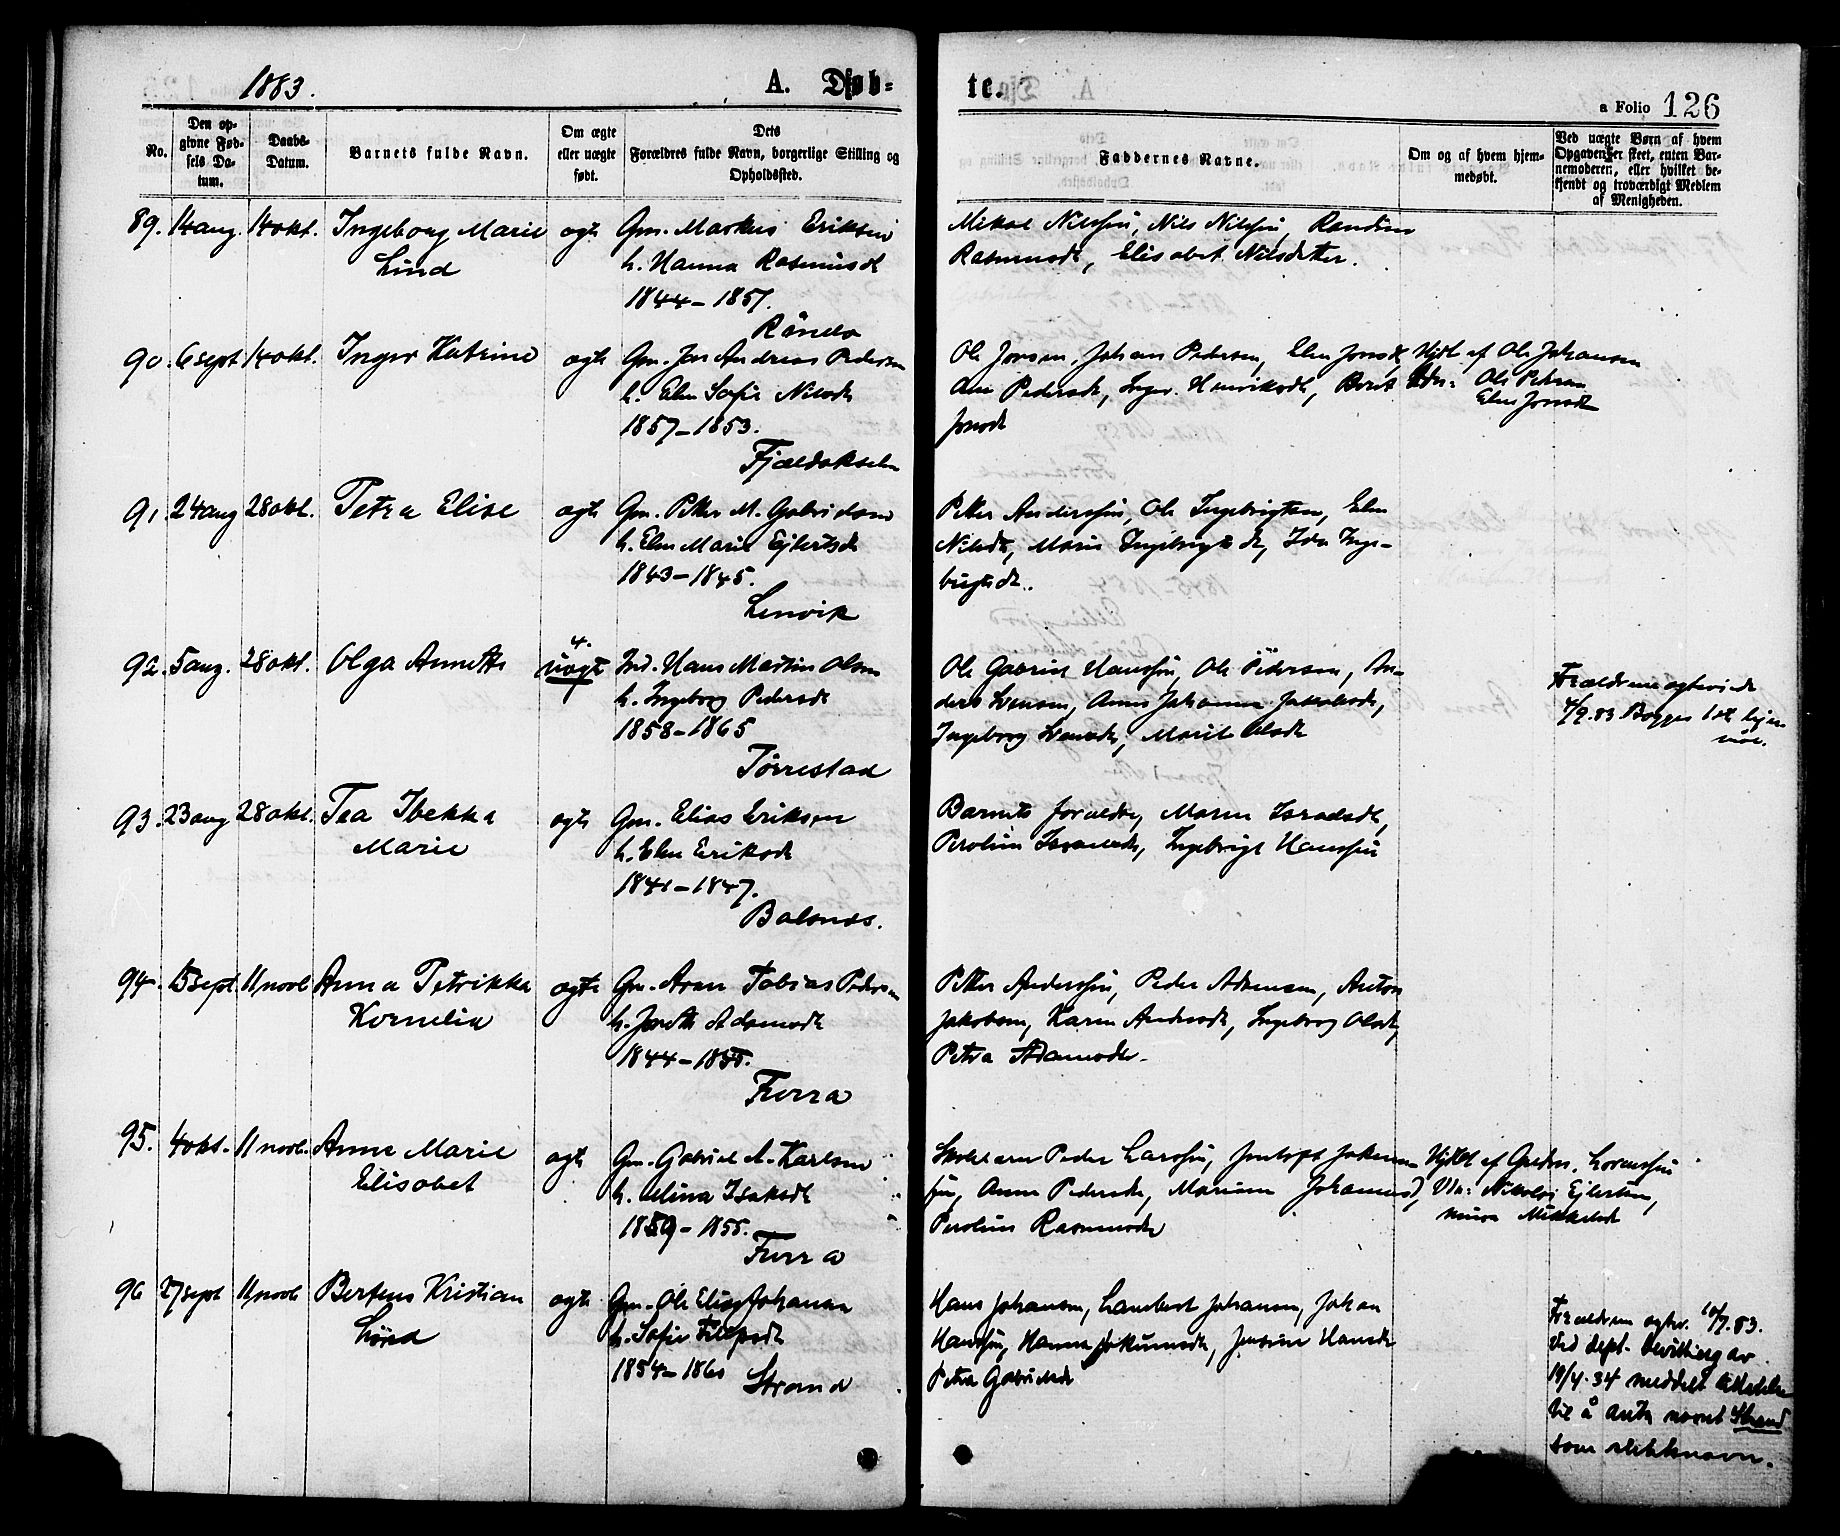 1883.
A. Døb-
te.
a Folio 126
No.
Den op-
givne Fød-
sels Da-
tum.
Daabs-
Datum.
Barnets fulde Navn.
Om ægte
eller uægte
født.
Dets
Forældres fulde Navn, borgerlige Stilling og
Opholdssted.
Faddernes Navne.
Om og af hvem hjem-
medøbt.
Ved uægte Børn af hvem
Opgaven er skeet, enten Bar-
nemoderen, eller hvilket be-
kjendt og troværdigt Medlem
af Menigheden.
89. 14 aug. 14 okt. Ingeborg Marie
Lind
ogte
Gm. Markus Eriksen
h. Hanna Rasmusdt
1844-1857.
Rånda
Mikal Nilssøn, Nils Nilssøn, Randine
Rasmusdt, Elisabet Nilsdatter.
90. 6 sept 14 okt. Inger Katrine
ogte
Gm. Jon Andreas Pedersen
h. Elen Sofie Nilsdt
1857-1853.
Fjældaksela
Ole Jonsen, Johans Pedersen, Elen Jonsdt,
Ane Pedersdt, Inger Henriksdt, Berit
Jonsdt
Hjdt af Ole Johansen
Vdn: Ole Petersen
Elen Jonsdt
91. 24 aug 28 okt. Petra Elise
ogte
Gm. Petter M. Gabrielsen
h. Elen Marie Ejlertsdt
1843-1845.
Lenvik
Petter Anderssøn, Ole Ingebrigtsen, Elen
Nilsdt, Marie Ingebrigtsdt, Ida Inge-
brigtsdt.
92. 5 aug. 28 okt. Olga Annette
4.
uogte
Ind. Hans Martin Olsen
h. Ingeborg Pedersdt
1858-1865
Tørrestad
Ole Gabriel Hanssøn, Ole Pedersen, An-
ders Svensen, Anne Johanna Jakobsdt,
Ingeborg Svensdt, Marit Olsdt
Forældrene ogteviede
4/9.83 Begges 1st lejer-
maal.
93. 23 aug 28 okt. Tea Ibekka
Marie
ogte
Gm. Elias Eriksen
h. Elen Eriksdt
1841-1847.
Balsnes.
Barnets forældre, Maren Israelsdt,
Peroline Israelsdt, Ingebrigt Hanssøn
94. 15 sept. 11 novb Anna Petrikka
Kornelia
ogte
Gm. Aron Tobias Pedersen
h. Jonette Adamsdt
1844-1855.
Forra
Petter Anderssøn, Peder Adamsen, Anton
Jakobsen, Karen Andersdt, Ingeborg Olsdt,
Petra Adamsdt.
95. 4 okt. 11 novb. Anne Marie
Elisabet
ogte
Gm. Gabriel A. Karlsen
h. Mina Isaksdt
1859-1855.
Forra
Skolelærer Peder Larssøn, Jentoft Johannes-
søn, Anne Pedersdt, Mariane Johannesdt,
Peroline Rasmusdt
Hjdt af Lorenssøn
Vdn: Nikolai Ejlertsen,
Mikkelsdt
96 27 sept 11 novb Berteus Kristian
Lorid
ogte
Gm. Ole Elias Johansen
h. Sofie Filipsdt
1854-1860
Strand
Hans Johansen, Lambert Johansen, Johan
Hanssøn, Hanna Jokumsdt, Jensine Hansdt
Petra Gabrielsdt
Forældrene ogtev. 10/7.83.
Ved dept. bevilling av
19/4.34 meddelt tillatelse
til å anta navnet Strand
som slektsnavn.